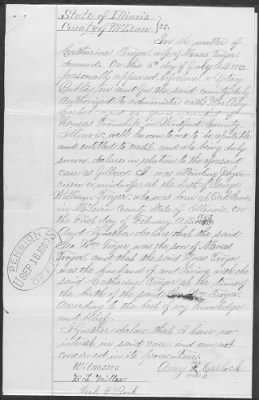 State of Illinois
County of McLean } ss.
In the matter of
Catharine Troyer widow of Moses Troyer
deceased. On this 5th day of July A.D. 18
personally appeared before me a Notary
Public in and for the said county duly
authorized to administer oaths Amy
township in Woodford county
Illinois, well known to me to be reputable
and entitled to credit and who being duly
sworn declares in relation to the aforesaid
case as follows: I was attending
at the birth of George
William Troyer, who was born at
in McLean County State of Illinois, on
the first day of
and further declare that the said
Geo. Wm. Troyer was the son of Moses
Troyer and that the said Moses Troyer
was the husband of and living with the
said Catharine Troyer at the time of
the birth of the said Troyer.
according to the best of my knowledge
and belief.
I further declare that I have no
interest in said case and am not
concerned in its prosecution.
Witnesses
Amy Carlock
mark
PENSION OFFICE
U.S. SEP 18